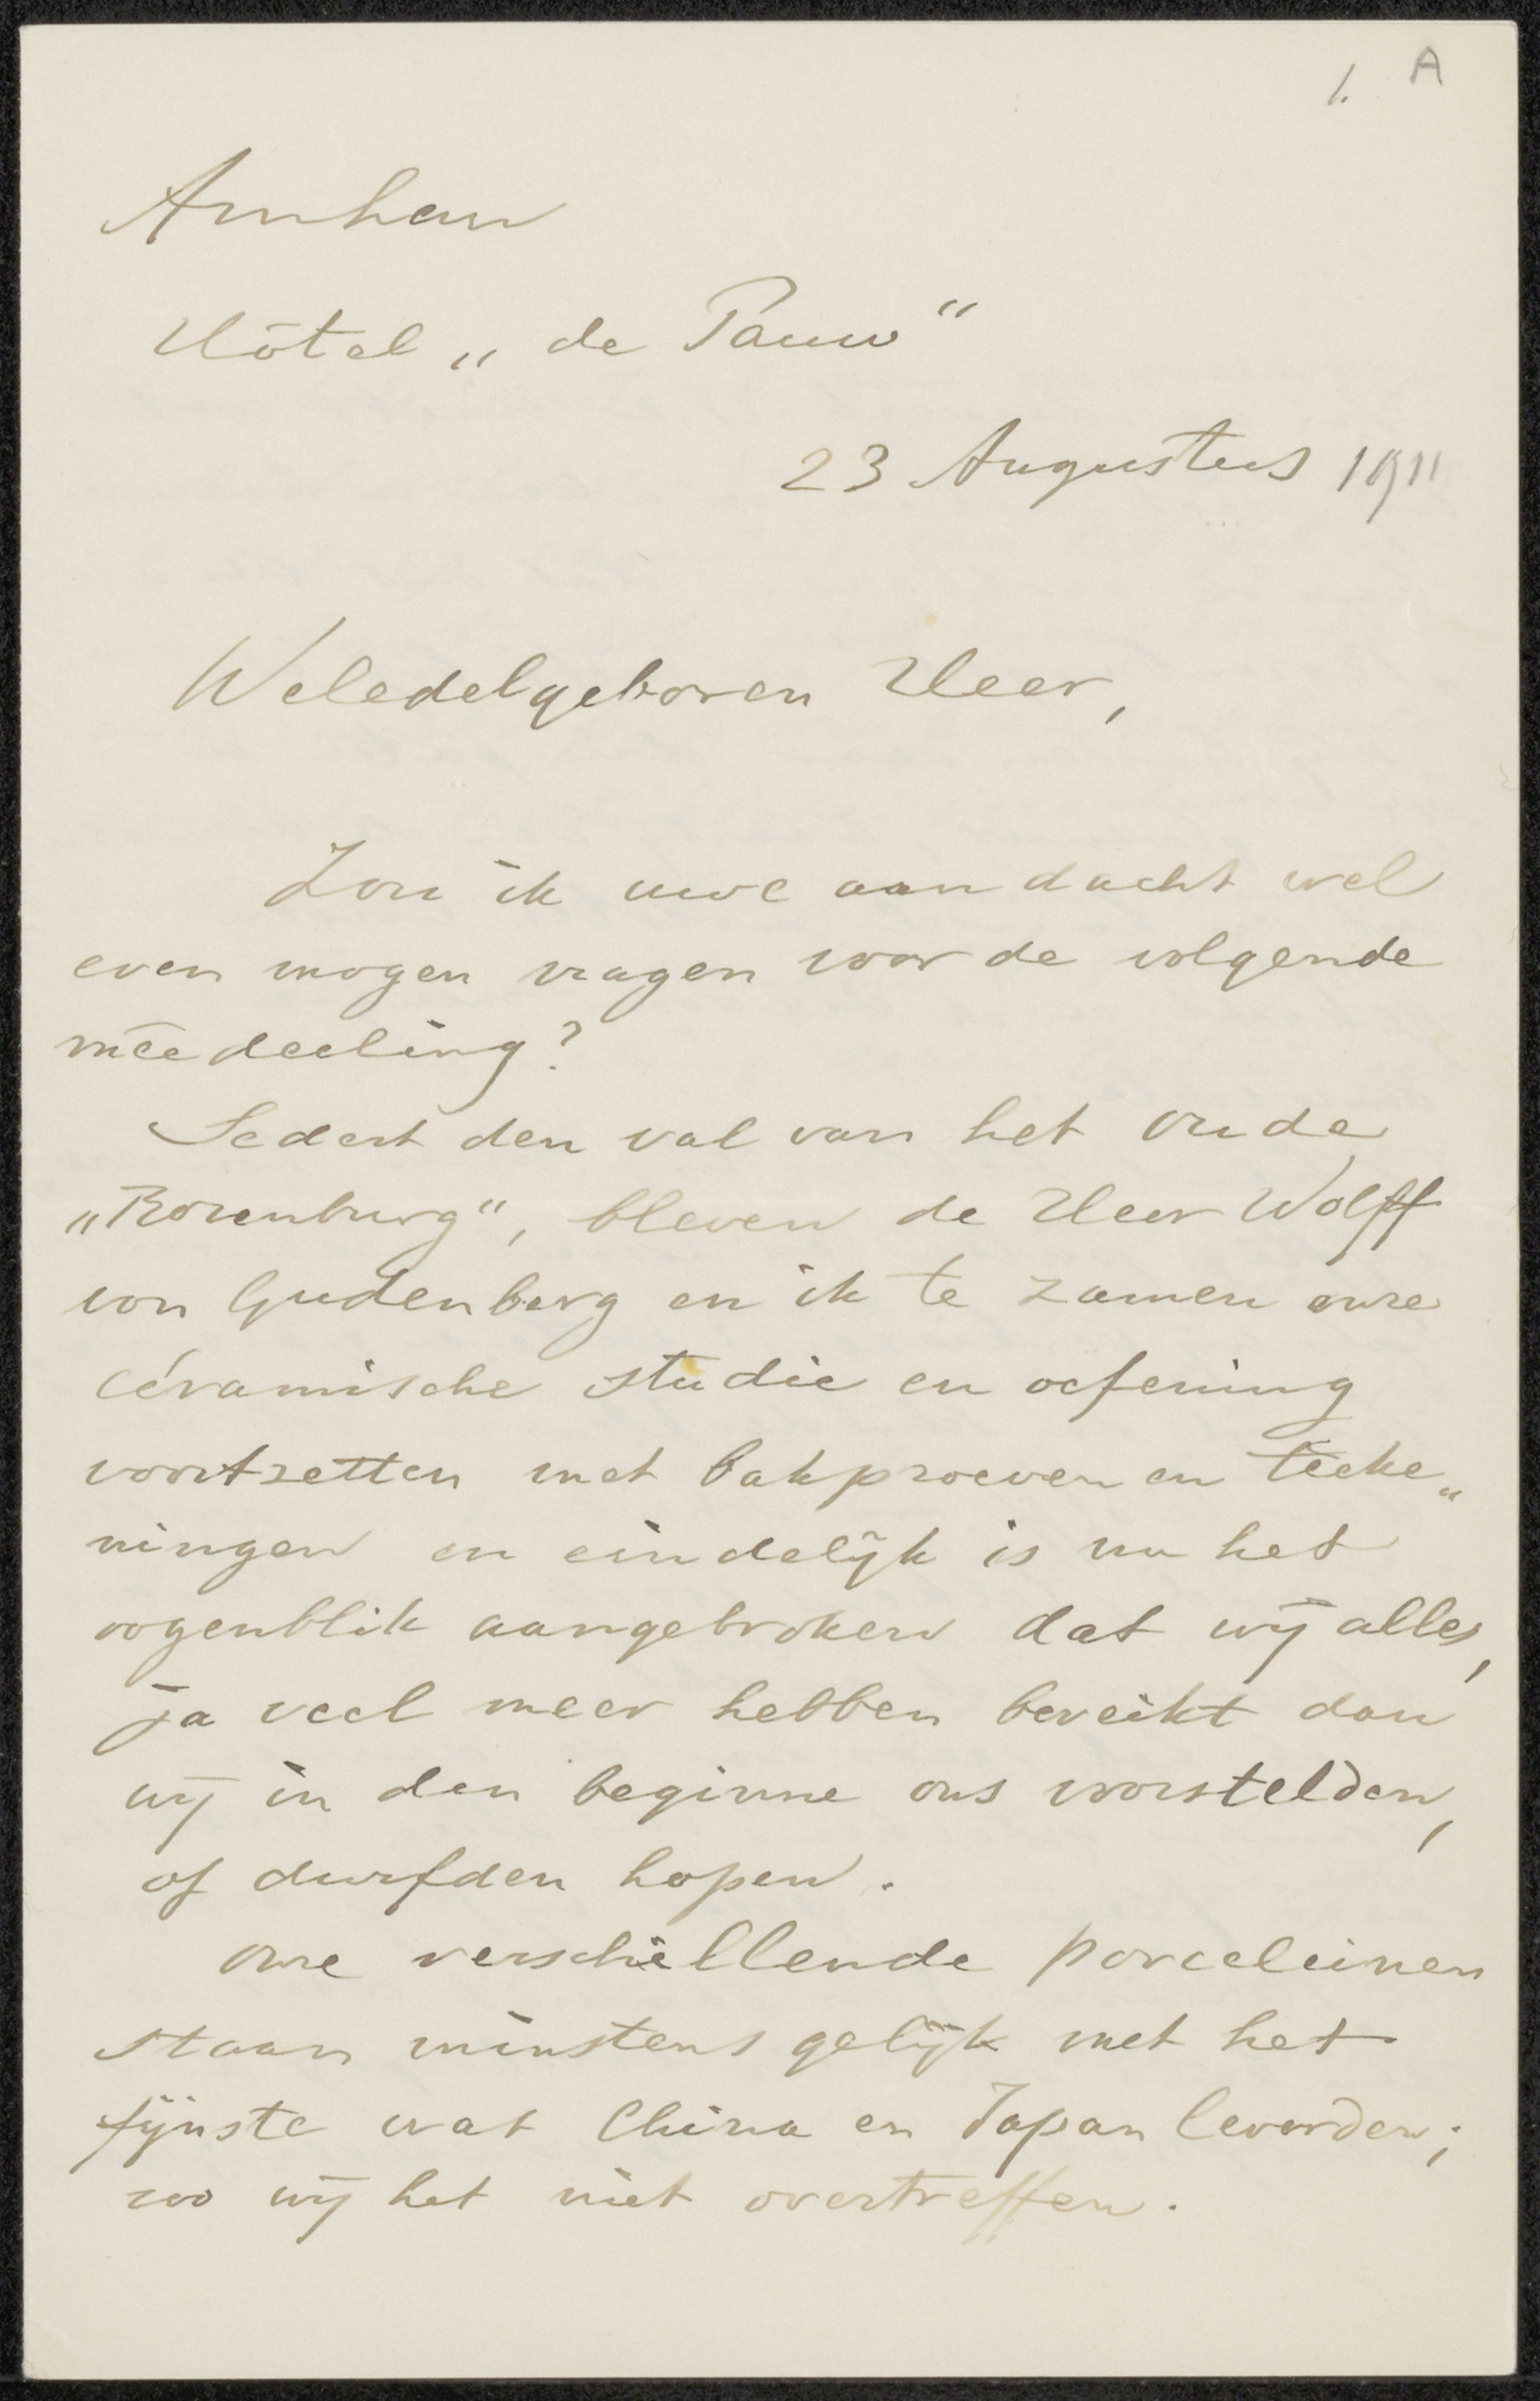 1. A
Arnhem
Hôtel „ de Pauw "
23 Augustus 1911
Weledelgeboren Heer,
Zou ik uwe aandacht wel
even mogen vragen voor de volgende
méédeeling?
Sedert den val van het oude
„Rozenburg", bleven de Heer Wolff
von Gudenberg en ik te zamen onze
céramische studie en oefening
voortzetten met bakproeven en teeke„
ningen en eindelijk is nu het
oogenblik aangebroken dat wij alles,
ja veel meer hebben bereikt dan
wij in den beginne ons voorstelden,
of durfden hopen.
Onze verschillende porceleinen
staan minstens gelijk met het
fijnste wat China en Japan leverden;
zoo wij het niet overtreffen.